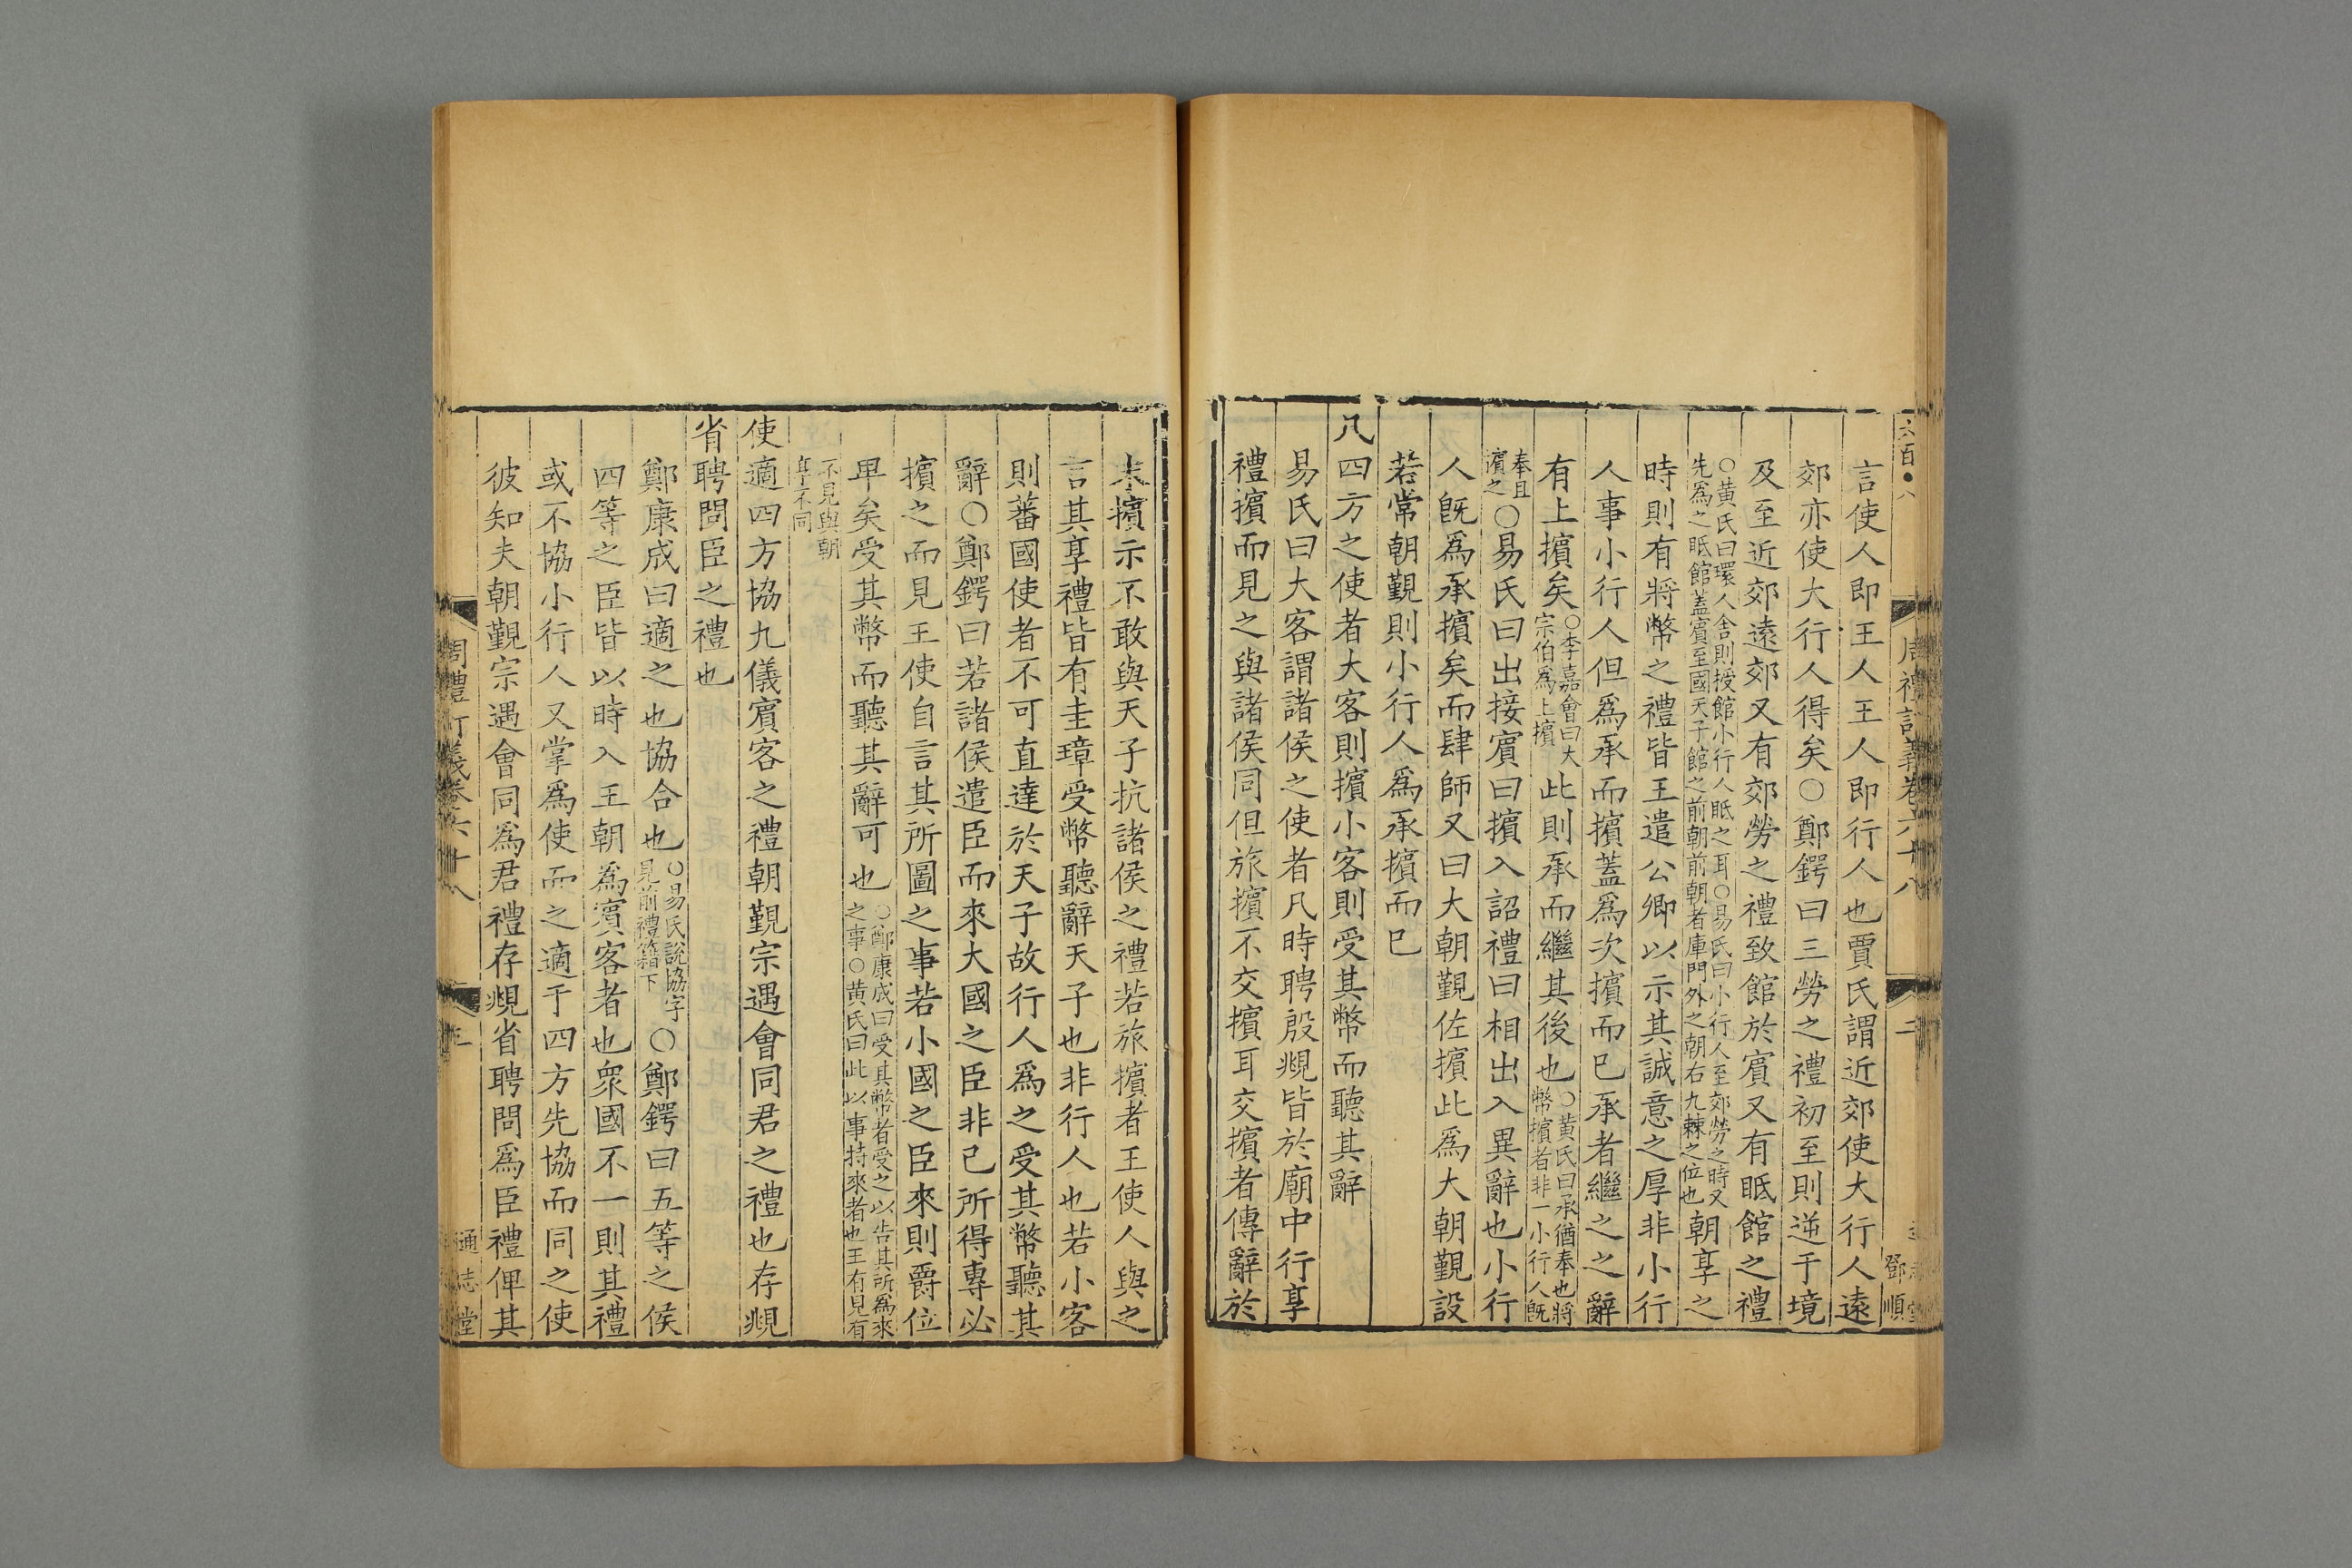 六百八
周禮訂義卷六十八
二
鄧順
言使人即王人王人即行人也賈氏謂近郊使大行人遠
郊亦使大行人得矣○鄭鍔曰三勞之禮初至則逆于境
及至近郊遠郊又有郊勞之禮致館於賓又有眂館之禮
○黃氏曰環人舍則授館小行人眂之耳○易氏曰小行人至郊勞之時又
先爲之眂館蓋賓至國天子館之前朝前朝者庫門外之朝右九棘之位也
朝享之
時則有將幣之禮皆王遣公卿以示其誠意之厚非小行
人事小行人但爲承而擯蓋爲次擯而已承者繼之之辭
有上擯矣
○李嘉會曰大
宗伯爲上擯
此則承而繼其後也
○黃氏曰承猶奉也將
幣擯者非一小行人旣
奉且
擯之
○易氏曰出接賓曰擯入詔禮曰相出入異辭也小行
人旣爲承擯矣而肆師又曰大朝覲佐擯此爲大朝覲設
若常朝覲則小行人爲承擯而已
凡四方之使者大客則擯小客則受其幣而聽其辭
易氏曰大客謂諸侯之使者凡時聘殷覜皆於廟中行享
禮擯而見之與諸侯同但旅擯不交擯耳交擯者傳辭於
末擯示不敢與天子抗諸侯之禮若旅擯者王使人與之
言其享禮皆有圭璋受幣聽辭天子也非行人也若小客
則蕃國使者不可直達於天子故行人爲之受其幣聽其
辭○鄭鍔曰若諸侯遣臣而來大國之臣非已所得專必
擯之而見王使自言其所圖之事若小國之臣來則爵位
卑矣受其幣而聽其辭可也
○鄭康成曰受其幣者受之以告其所爲來
之事○黃氏曰此以事持來者也王有見有
不見與朝
享不同
使適四方協九儀賓客之禮朝覲宗遇會同君之禮也存覜
省聘問臣之禮也
鄭康成曰適之也協合也
○易氏說協字
見前禮籍下
○鄭鍔曰五等之侯
四等之臣皆以時入王朝爲賓客者也衆國不一則其禮
或不協小行人又掌爲使而之適于四方先協而同之使
彼知夫朝覲宗遇會同爲君禮存覜省聘問爲臣禮俾其
周禮訂義卷六十八
三
通志堂